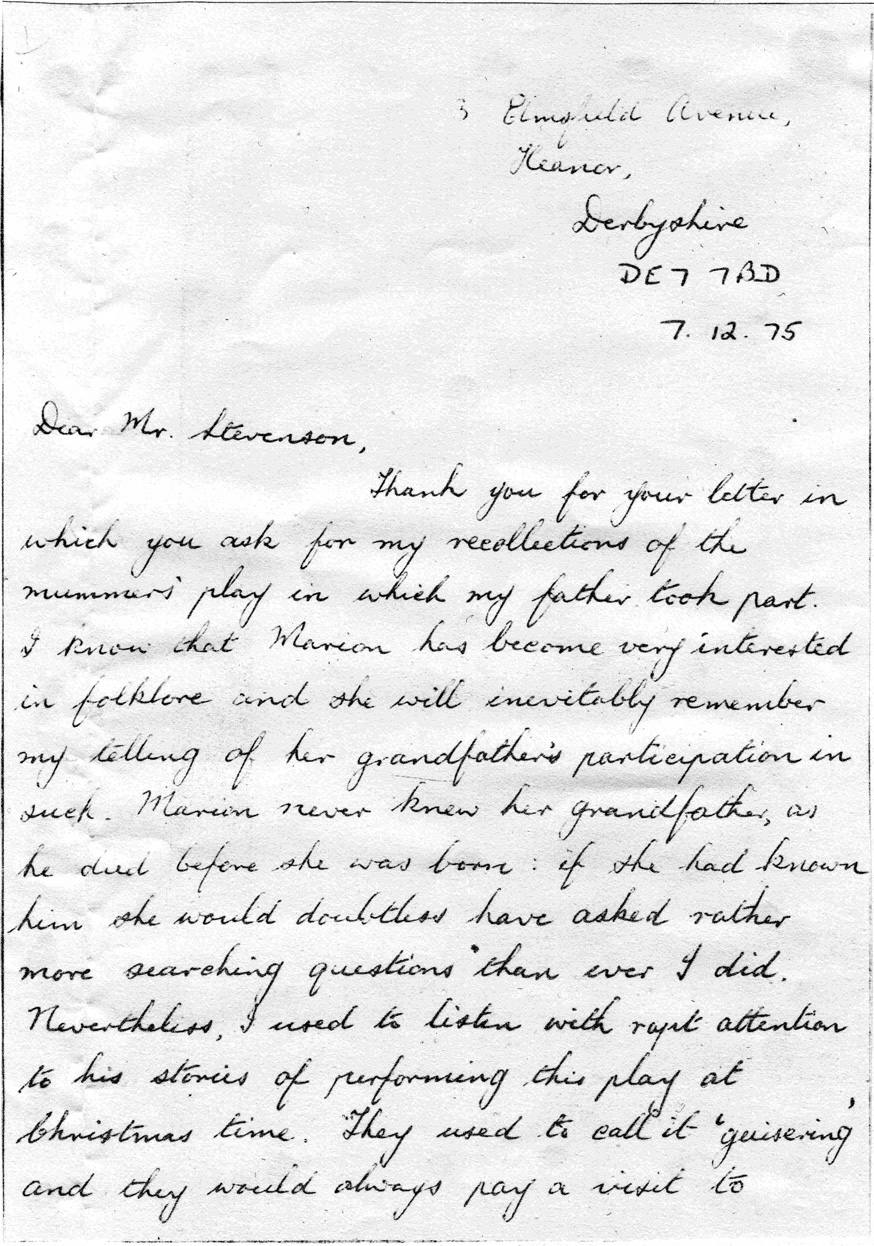 3 Elmsfield Avenue,
Heanor,
Derbyshire
DE7 7BD
7. 12. 75
Dear Mr. Stevenson,
Thank you for your letter in
which you ask for my recollections of the
mummers' play in which my father took part.
I know that Marion has become very interested
in folklore and she will inevitably remember
my telling of her grandfather's participation in
such. Marion never knew her grandfather, as
he died before she was born: if she had known
him she would doubtless have asked rather
more searching questions than ever I did.
Nevertheless, I used to listen with rapt attention
to his stories of performing this play at
Christmas time. They used to call it 'guisering'
and they would always pay a visit to